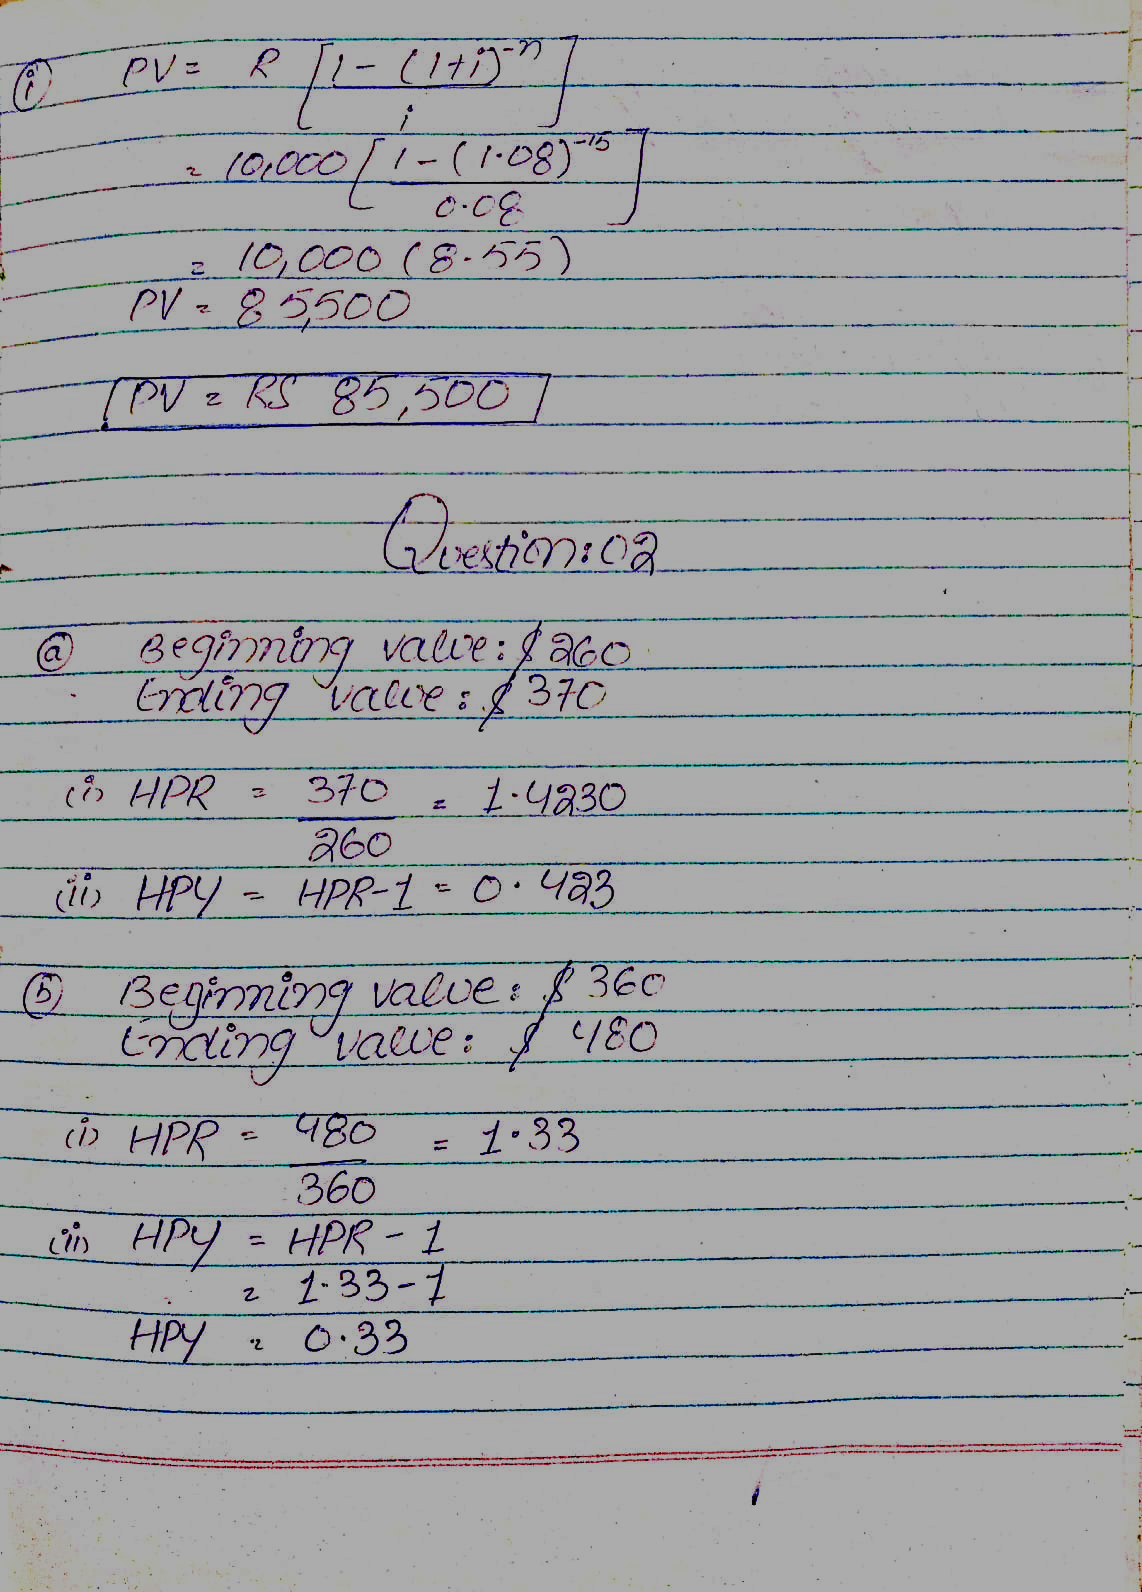 (i) PV = R [1 - (1+i)^-n / i]
= 10,000 [1 - (1.08)^-15 / 0.08]
= 10,000 (8.55)
PV = 85,500
PV = RS 85,500
Question: 02
(a) Beginning value: $260
Ending value: $370
(i) HPR = 370/260 = 1.4230
(ii) HPY = HPR-1 = 0.423
(b) Beginning value: $360
Ending value: $480
(i) HPR = 480/360 = 1.33
(ii) HPY = HPR - 1
= 1.33-1
HPY = 0.33